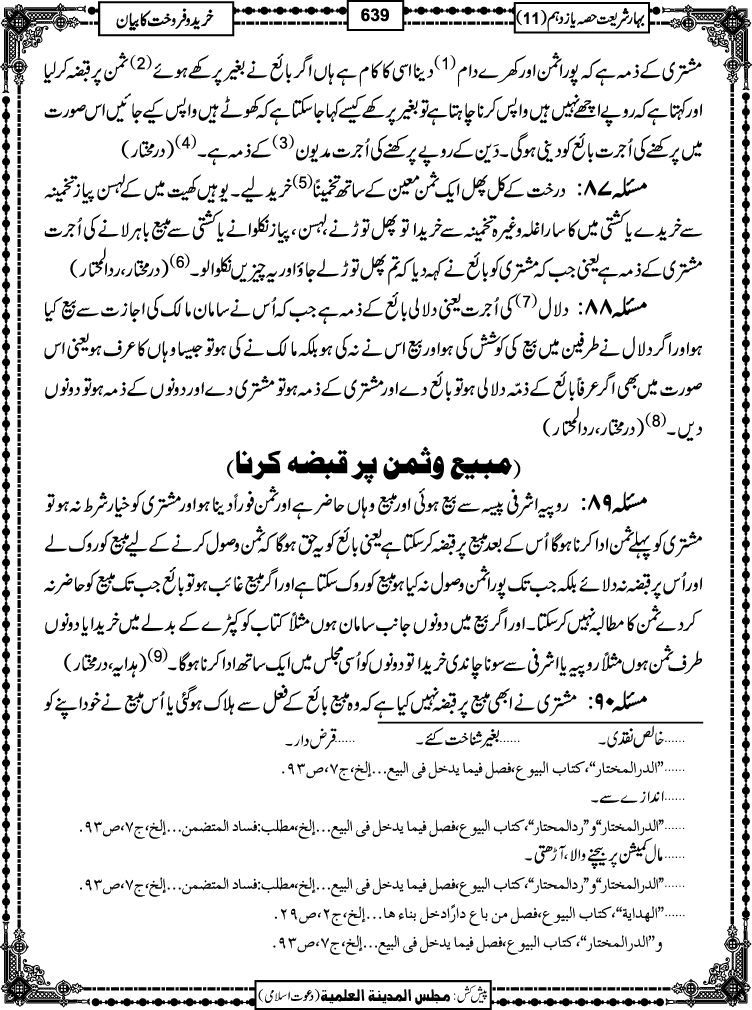 بہار شریعت حصہ یازدہم (11)
639
خرید و فروخت کا بیان
مشتری کے ذمہ ہے کہ پورا ثمن اور کھرے دام (1) دینا اسی کا کام ہے ہاں اگر بائع نے بغیر پرکھے ہوئے (2) ثمن پر قبضہ کرلیا
اور کہتا ہے کہ روپے اچھے نہیں ہیں واپس کرنا چاہتا ہے تو بغیر پرکھے کیسے کہا جاسکتا ہے کہ کھوٹے ہیں واپس کیے جائیں اس صورت
میں پرکھنے کی اُجرت بائع کو دینی ہوگی۔ دَین کے روپے پرکھنے کی اُجرت مدیون (3) کے ذمہ ہے۔ (4) (درمختار)
مسئلہ ۸۷: درخت کے کل پھل ایک ثمن معین کے ساتھ تخمیناً (5) خرید لیے۔ یوہیں کھیت میں کے لہسن پیاز تخمینہ
سے خریدے یا کشتی میں کا سارا غلہ وغیرہ تخمینہ سے خریدا تو پھل توڑنے، لہسن، پیاز نکلوانے یا کشتی سے مبیع باہر لانے کی اُجرت
مشتری کے ذمہ ہے یعنی جب کہ مشتری کو بائع نے کہہ دیا کہ تم پھل توڑلے جاؤ اور یہ چیزیں نکلوالو۔ (6) (درمختار، ردالمحتار)
مسئلہ ۸۸: دلال (7) کی اُجرت یعنی دلالی بائع کے ذمہ ہے جب کہ اُس نے سامان مالک کی اجازت سے بیع کیا
ہو اور اگر دلال نے طرفین میں بیع کی کوشش کی ہو اور بیع اس نے نہ کی ہو بلکہ مالک نے کی ہو تو جیسا وہاں کا عرف ہو یعنی اس
صورت میں بھی اگر عرفاً بائع کے ذمّہ دلالی ہو تو بائع دے اور مشتری کے ذمہ ہو تو مشتری دے اور دونوں کے ذمہ ہو تو دونوں
دیں۔ (8) (درمختار، ردالمحتار)
(مبیع وثمن پر قبضہ کرنا)
مسئلہ ۸۹: روپیہ اشرفی پیسہ سے بیع ہوئی اور مبیع وہاں حاضر ہے اور ثمن فوراً دینا ہو اور مشتری کو خیار شرط نہ ہو تو
مشتری کو پہلے ثمن ادا کرنا ہوگا اُس کے بعد مبیع پر قبضہ کرسکتا ہے یعنی بائع کو یہ حق ہوگا کہ ثمن وصول کرنے کے لیے مبیع کو روک لے
اور اُس پر قبضہ نہ دلائے بلکہ جب تک پورا ثمن وصول نہ کیا ہو مبیع کو روک سکتا ہے اور اگر مبیع غائب ہو تو بائع جب تک مبیع کو حاضر نہ
کردے ثمن کا مطالبہ نہیں کرسکتا۔ اور اگر بیع میں دونوں جانب سامان ہوں مثلاً کتاب کو کپڑے کے بدلے میں خریدا یا دونوں
طرف ثمن ہوں مثلاً روپیہ یا اشرفی سے سونا چاندی خریدا تو دونوں کو اُسی مجلس میں ایک ساتھ ادا کرنا ہوگا۔ (9) (ہدایہ، درمختار)
مسئلہ ۹۰: مشتری نے ابھی مبیع پر قبضہ نہیں کیا ہے کہ وہ مبیع بائع کے فعل سے ہلاک ہوگئی یا اُس مبیع نے خود اپنے کو
......خالص نقدی۔ ......بغیر شناخت کئے۔ ......قرض دار۔
......"الدرالمختار"، کتاب البیوع، فصل فیما یدخل فی البیع...إلخ، ج۷، ص۹۳.
......اندازے سے۔
......"الدرالمختار" و "ردالمحتار"، کتاب البیوع، فصل فیما یدخل فی البیع...إلخ، مطلب: فساد المتضمن...إلخ، ج۷، ص۹۳.
......مال کمیشن پر بیچنے والا، آڑھتی۔
......"الدرالمختار" و "ردالمحتار"، کتاب البیوع، فصل فیما یدخل فی البیع...إلخ، مطلب: فساد المتضمن...إلخ، ج۷، ص۹۳.
......"الھدایة"، کتاب البیوع، فصل من باع دارًا دخل بناء ھا...إلخ، ج۲، ص۲۹.
و "الدرالمختار"، کتاب البیوع، فصل فیما یدخل فی البیع...إلخ، ج۷، ص۹۳.
پیش کش: مجلس المدینة العلمیة (دعوت اسلامی)